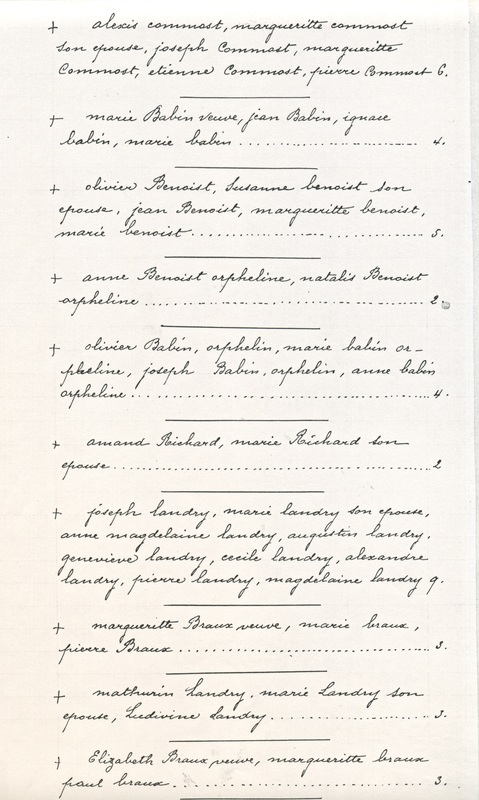 + alexis commost, margueritte commost
son epouse, joseph Commost, margueritte
Commost, etienne Commost, pierre Commost 6.
+ marie Babin veuve, jean Babin, ignace
babin, marie babin .......... 4.
+ olivier Benoist, Susanne benoist son
epouse, jean Benoist, margueritte benoist,
marie benoist .......... 5.
+ anne Benoist orpheline, natalis Benoist
orpheline .......... 2.
+ olivier Babin, orphelin, marie babin or-
pheline, joseph Babin, orphelin, anne babin
orpheline .......... 4.
+ amand Richard, marie Richard son
epouse .......... 2
+ joseph landry, marie landry son epouse,
anne magdelaine landry, augustin landry,
genevieve landry, cecile landry, alexandre
landry, pierre landry, magdelaine landry 9.
+ margueritte Braux veuve, marie braux,
pierre Braux .......... 3.
+ mathurin landry, marie Landry son
epouse, Ludivine Landry .......... 3.
+ Elizabeth Braux veuve, margueritte braux
paul braux .......... 3.